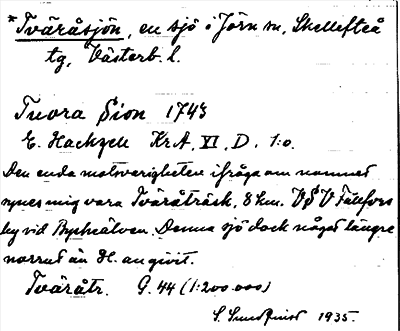 *Tväråsjön, en sjö i Jörn sn, Skellefteå
tg, Västerb. l.
Tuora Sion 1743
E. Hackzell KrA, VI, D, 1:o.
Den enda motsvarigheten ifråga om namnet
synes mig vara Tväråträsk, 8 km. VSV Fällfors
by vid Byskeälven. Denna sjö dock något längre
norrut än H. angivit.
Tväråtr. G. 44 (1:200.000)
S. Sundqvist 1935.